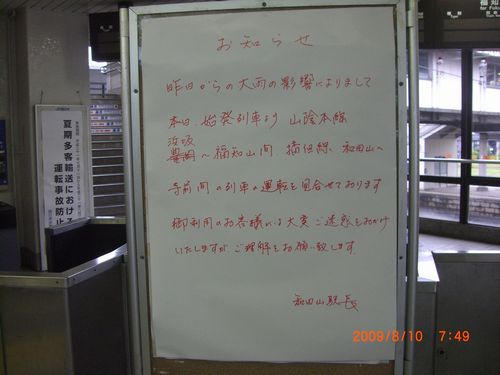 お知らせ
昨日からの大雨の影響によりまして
本日、始発列車より 山陰本線
浜坂
豊岡～福知山間 播但線、和田山～
寺前間の列車の運転を見合せております
御利用のお客様には大変ご迷惑をおかけ
いたしますが ご理解をお願い致します。
和田山駅長
夏期多客輸送における
運転事故防止
福知
for Fuku
2009/8/10 7:49